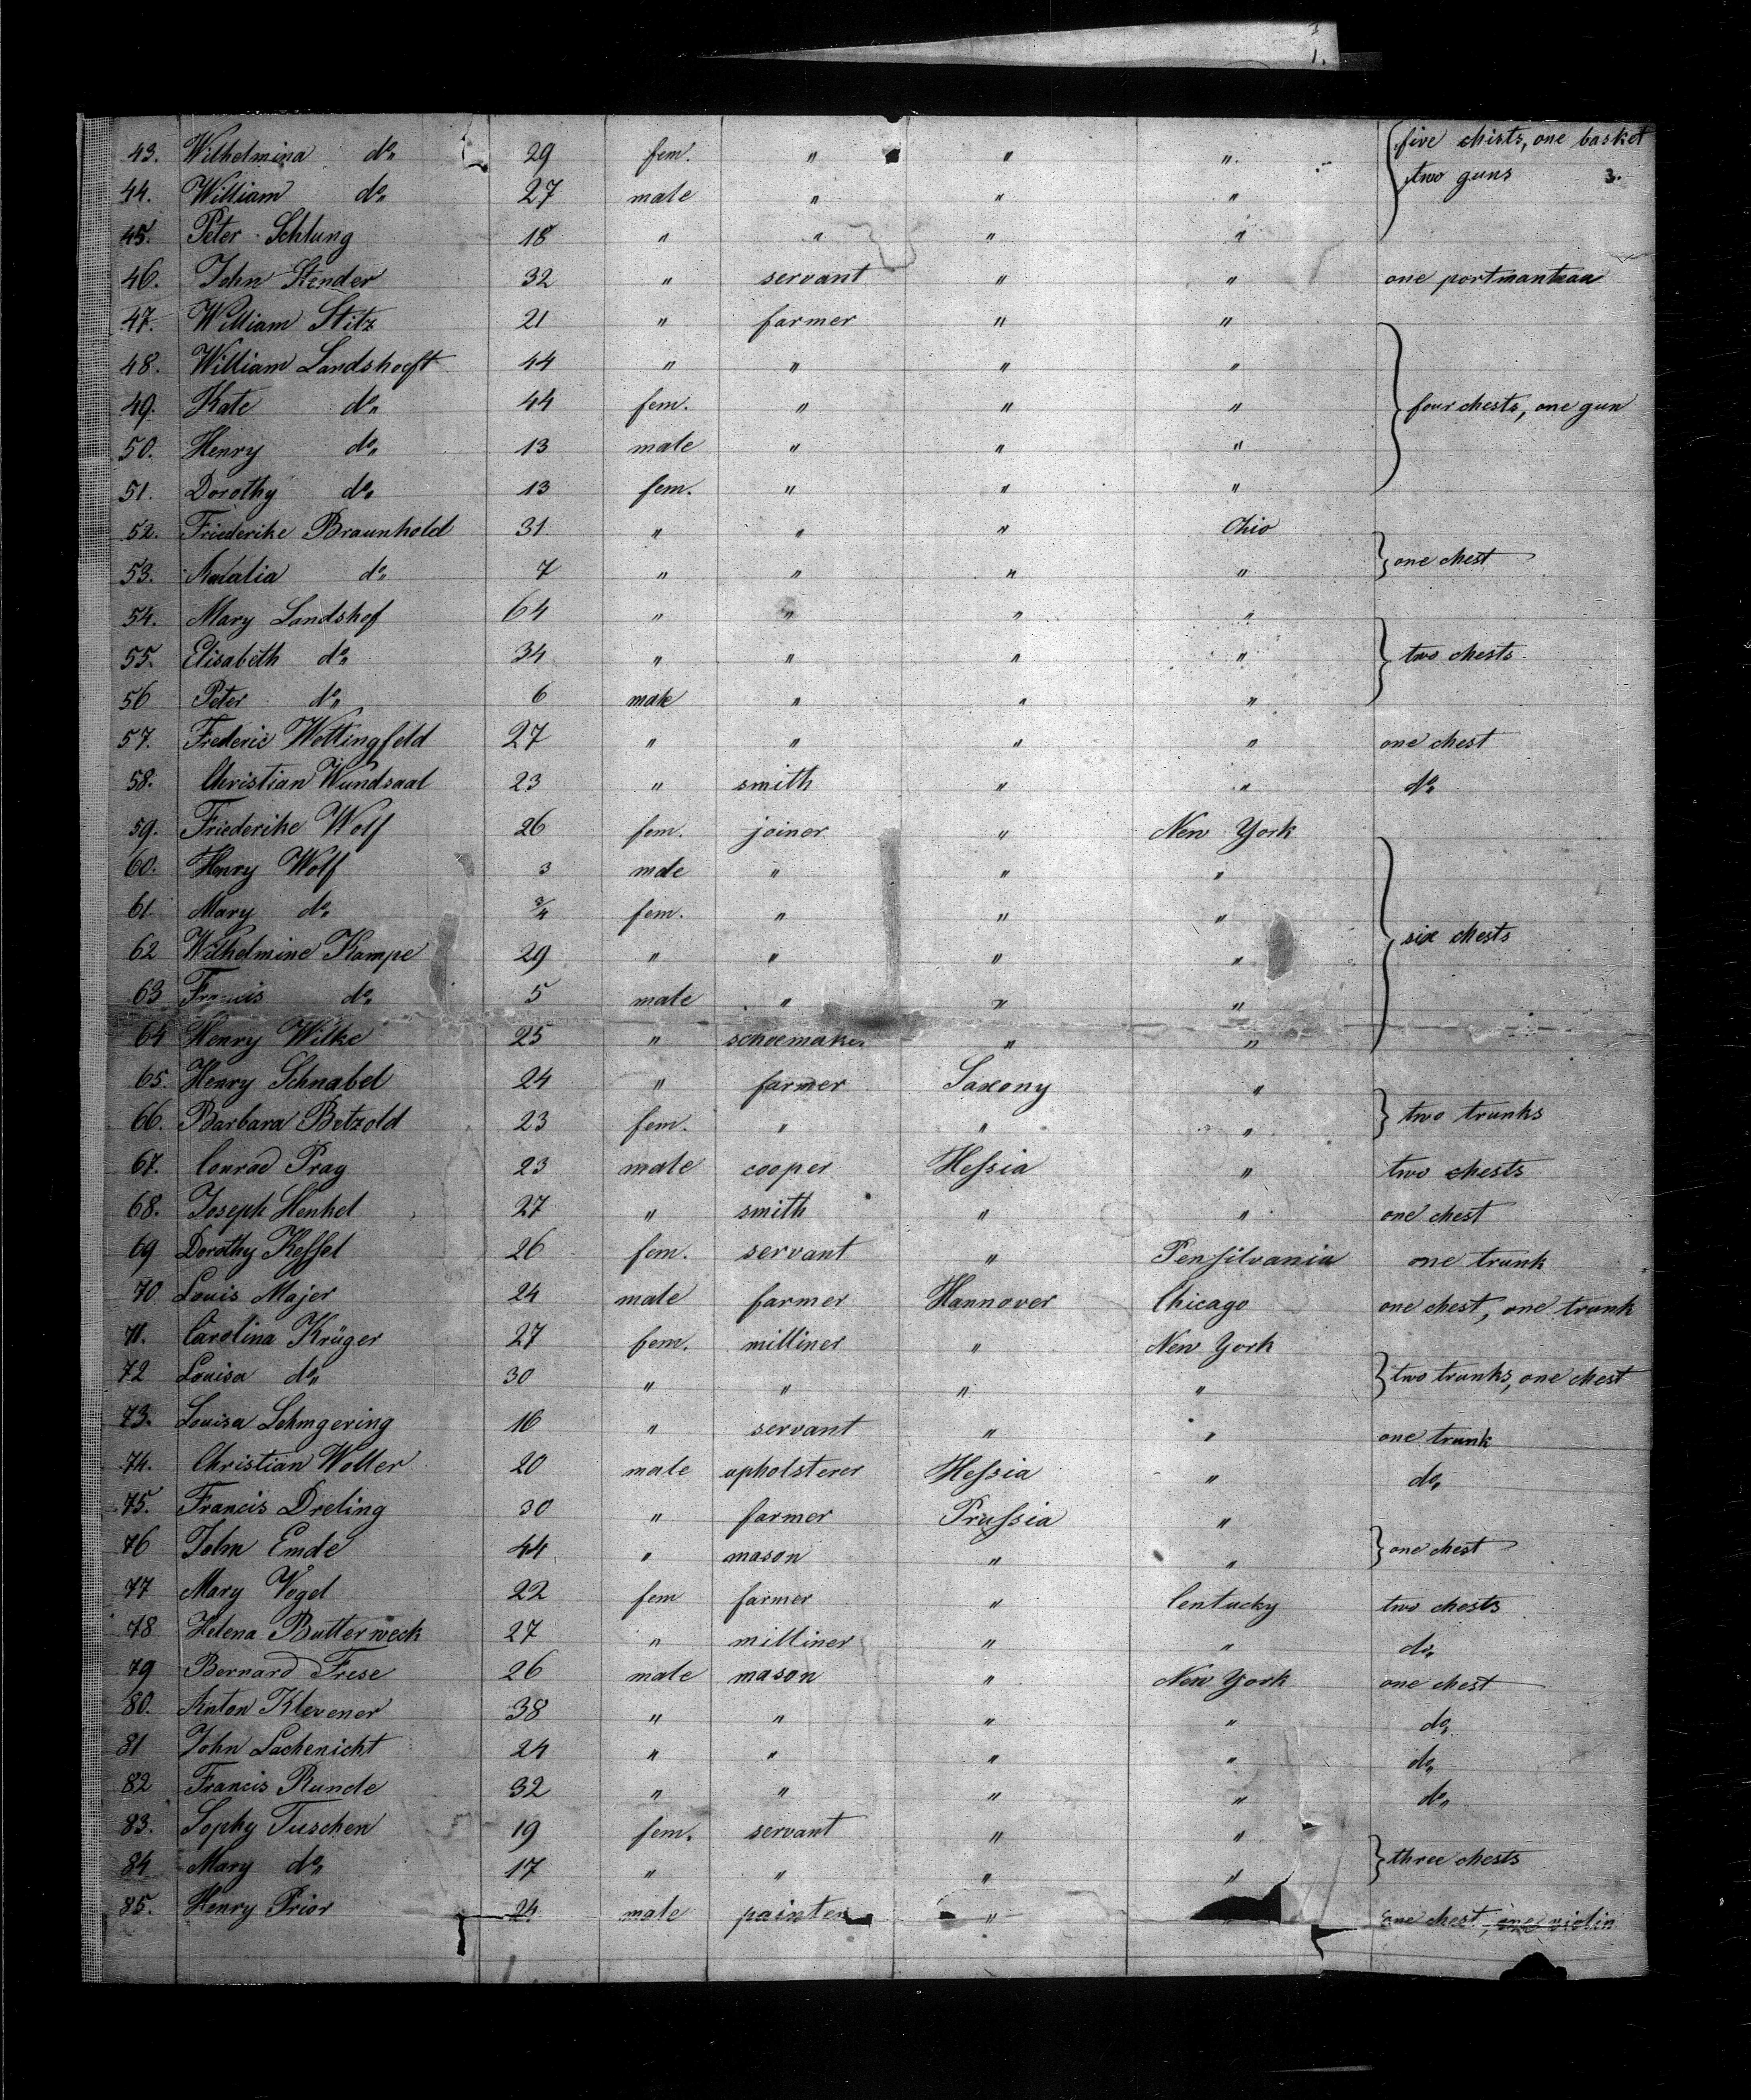 3
1.
43. Wilhelmina do 29 fem. " " " five chists, one basket
two guns 3.
44. William do 27 male " " "
45. Peter Schlung 18 " " " "
46. John Stender 32 " servant " " one portmanteau
47. William Stitz 21 " farmer " "
48. William Landshooft 44 " " " "
49. Kate do 44 fem. " " " four chests, one gun
50. Henry do 13 male " " "
51. Dorothy do 13 fem. " " "
52. Friederike Braunhold 31. " " " Ohio
53. do 7 " " " " one chest
54. Mary Landshof 64 " " " "
55. Elisabeth do 34 " " " " two chests
56 Peter do 6 male " " "
57. Frederic Wettingfeld 27 " " " " one chest
58. Christian Wundsaal 23 " smith " " do
59. Friederike Wolf 26 fem. joiner " New York
60. Henry Wolf 3 male " " "
61. Mary do 3/4 fem. " " "
62 Wilhelmine Kampe 29 " " " " six chests
63 Francis do 5 male " " "
64 Henry Wilke 25 " schoemaker " "
65. Henry Schnabel 24 " farmer Saxony "
66. Barbara Betzold 23 fem. " " " two trunks
67. Conrad Prag 23 male cooper Hessia " two chests
68. Joseph Henkel 27 " smith " " one chest
69 Dorothy Kessel 26 fem. servant " Pensilvania one trunk
70 Louis Majer 24 male farmer Hannover Chicago one chest, one trunk
71. Carolina Krüger 27 fem. milliner " New York
72 Louisa do 30 " " " " two trunks, one chest
73. Louisa Lehmgering 16 " servant " " one trunk
74. Christian Wolter 20 male upholsterer Hessia " do
75. Francis Dreling 30 " farmer Prussia "
76 John Emde 44 " mason " " one chest
77 Mary Vogel 22 fem farmer " Centucky two chests
78 Helena Butterweck 27 " milliner " " do
79 Bernard Frese 26 male mason " New York one chest
80. Anton Klevener 38 " " " " do
81 John Lachenicht 24 " " " " do
82 Francis Runde 32 " " " " do
83. Sophy Tuschen 19 fem. servant " "
84 Mary do 17 " " " " three chests
85. Henry Prior 24 male painter " " one chest, one violin